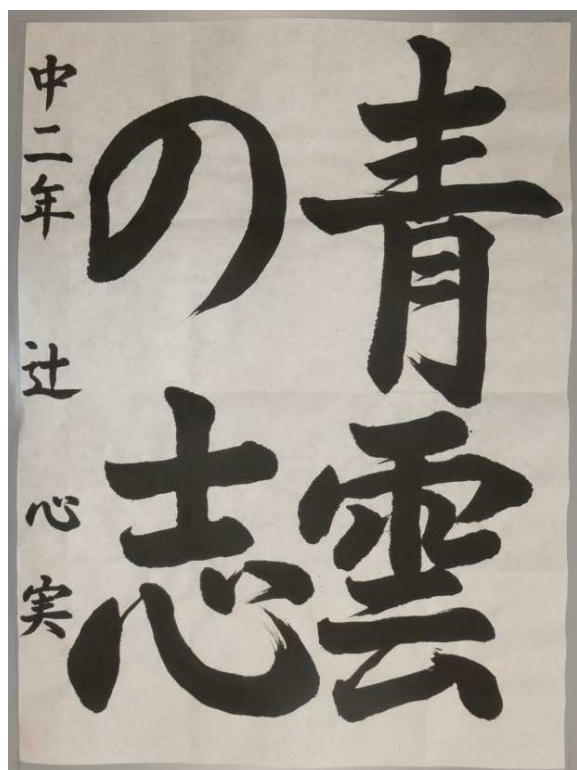 青雲
の志
中二年 辻 心実